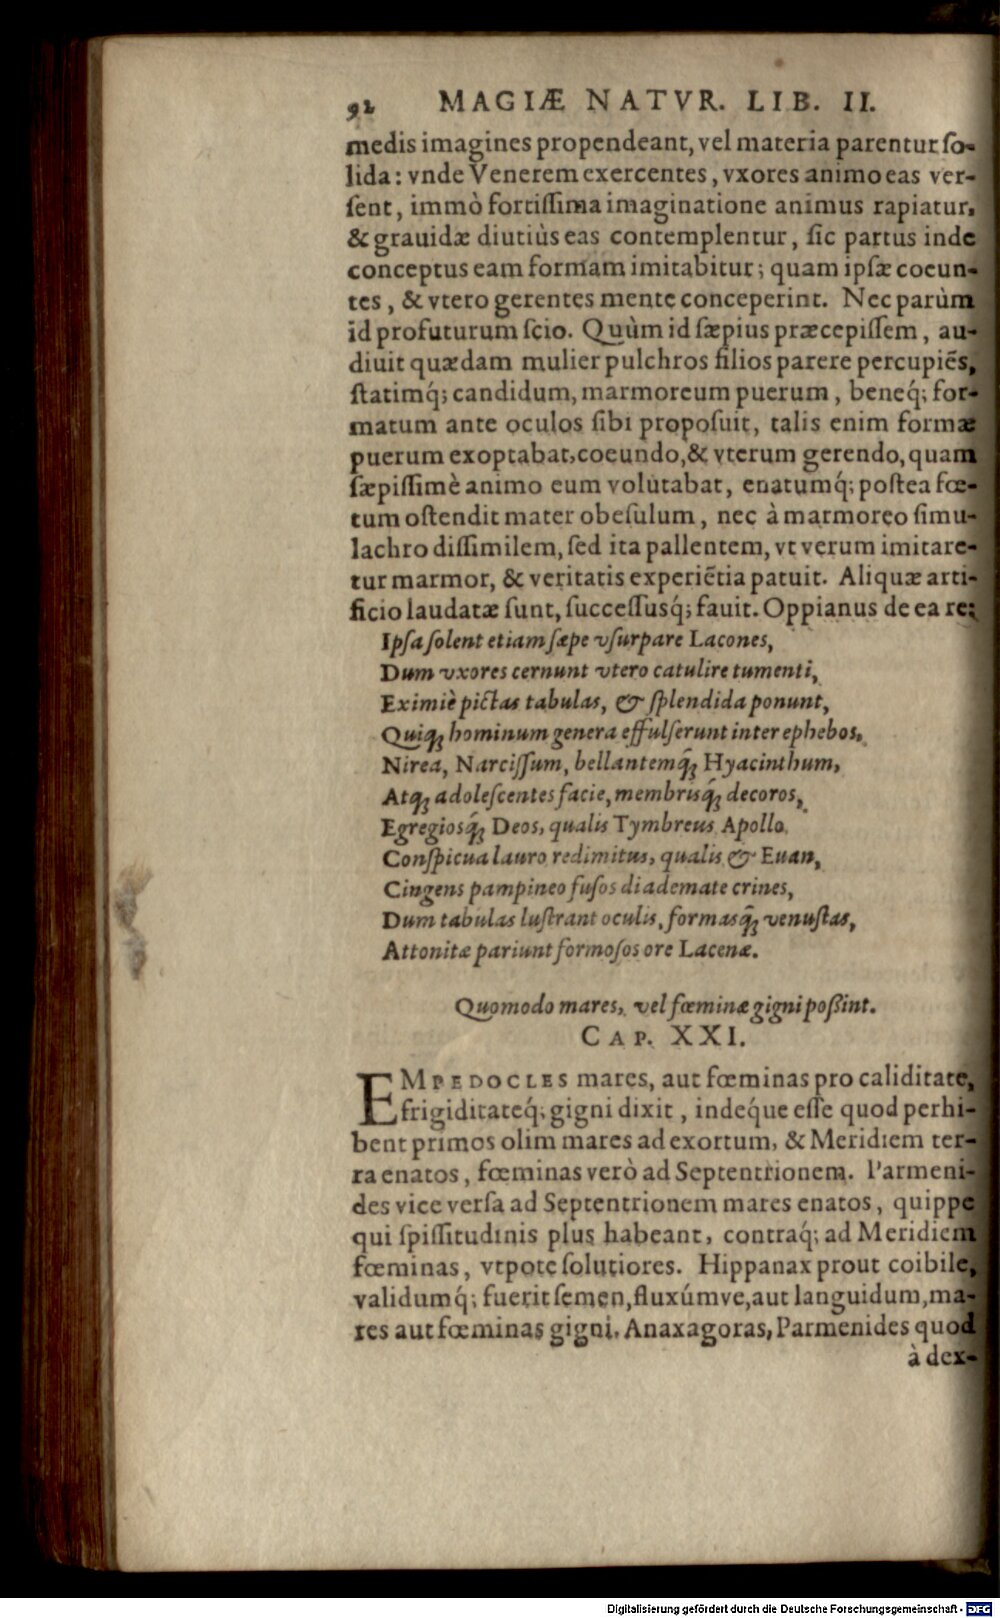 92 MAGIÆ NATVR. LIB. II.
medis imagines propendeant, vel materia parentur ſo-
lida: vnde Venerem exercentes, vxores animo eas ver-
ſent, immò fortiſſima imaginatione animus rapiatur,
& grauidæ diutiùs eas contemplentur, ſic partus inde
conceptus eam formam imitabitur; quam ipſæ coeun-
tes, & vtero gerentes mente conceperint. Nec parùm
id profuturum ſcio. Quùm id ſæpius præcepiſſem, au-
diuit quædam mulier pulchros filios parere percupiēs,
ſtatimq́; candidum, marmoreum puerum, beneq́; for-
matum ante oculos ſibi propoſuit, talis enim formæ
puerum exoptabat, coeundo, & vterum gerendo, quam
ſæpiſſimè animo eum volutabat, enatumq́; poſtea fœ-
tum oſtendit mater obeſulum, nec à marmoreo ſimu-
lachro diſſimilem, ſed ita pallentem, vt verum imitare-
tur marmor, & veritatis experiētia patuit. Aliquæ arti-
ficio laudatæ ſunt, ſucceſſusq́; fauit. Oppianus de ea re:
Ipſa ſolent etiam ſæpe vſurpare Lacones,
Dum vxores cernunt vtero catulire tumenti,
Eximiè pictas tabulas, & ſplendida ponunt,
Quiq; hominum genera effulſerunt inter ephebos,
Nirea, Narciſſum, bellantemq́; Hyacinthum,
Atq; adoleſcentes facie, membrisq́; decoros,
Egregiosq́; Deos, qualis Tymbreus Apollo
Conſpicua lauro redimitus, qualis & Euan,
Cingens pampineo fuſos diademate crines,
Dum tabulas luſtrant oculis, formasq́; venuſtas,
Attonitæ pariunt formoſos ore Lacenæ.
Quomodo mares, vel fœminæ gigni poßint.
CAP. XXI.
EMPEDOCLES mares, aut fœminas pro caliditate,
frigiditateq́; gigni dixit, indeque eſſe quod perhi-
bent primos olim mares ad exortum, & Meridiem ter-
ra enatos, fœminas verò ad Septentrionem. Parmeni-
des vice verſa ad Septentrionem mares enatos, quippe
qui ſpiſſitudinis plus habeant, contraq́; ad Meridiem
fœminas, vtpote ſolutiores. Hippanax prout coibile,
validumq́; fuerit ſemen, fluxúmve, aut languidum, ma-
res aut fœminas gigni. Anaxagoras, Parmenides quod
à dex-
Digitalisierung gefördert durch die Deutsche Forschungsgemeinschaft - DFG